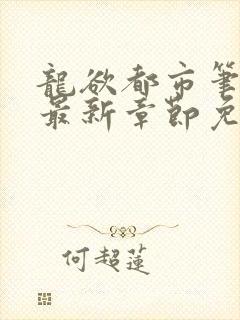 龍欲都市筆
最新章節免
何超蓮